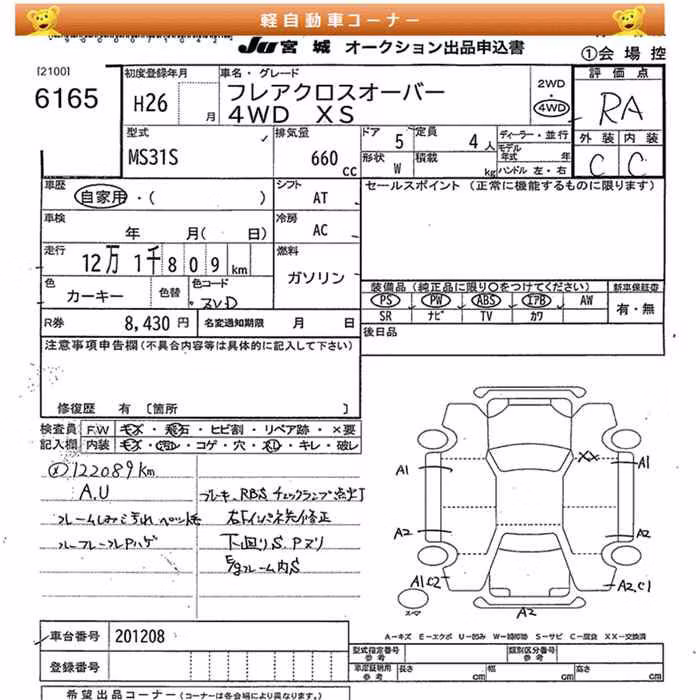 軽自動車コーナー
JU宮城 オークション出品申込書
①会場控
[2100]
6165
初度登録年月
H26 月
車名・グレード
フレアクロスオーバー
4WD XS
2WD
・
4WD
評価点
RA
外装 内装
C C
型式
MS31S
排気量
660 cc
ドア 5
定員 4人
形状 W
積載 kg
ディーラー・並行
モデル年式 年
ハンドル 左・右
車歴
自家用・( )
シフト
AT
セールスポイント (正常に機能するものに限ります)
車検
年 月( 日)
冷房
AC
走行
12万1千809km
燃料
ガソリン
色
カーキー
色替
色コード
ZVD
装備品 (純正品に限り○をつけてください)
新車保証書
PS PW ABS エアB AW
有・無
SR ナビ TV カワ
R券 8,430円
名変通知期限 月 日
後日品
注意事項申告欄 (不具合内容等は具体的に記入して下さい)
修復歴 有 [箇所 ]
検査員 F.W キズ・飛石・ヒビ割・リペア跡・×要
記入欄 内装 キズ・汚レ・コゲ・穴・スレ・キレ・破レ
122089km
A.U
ブレーキ、RBSチェックランプ点灯
右Fインパネ先修正
ルーフレールPハゲ
下廻りS.Pヌリ
E/gルーム内S
XX
A1
A1
A2
A2
A1C2
A2,C1
A2
スペア
A−キズ E−エクボ U−凹み W−補修跡 S−サビ C−腐食 XX−交換済
車台番号 201208
登録番号
型式指定番号
参考
類別区分番号
参考
車庫証明用
参考
長さ cm 幅 cm 高さ cm
希望出品コーナー (コーナーは各会場により異なります。)